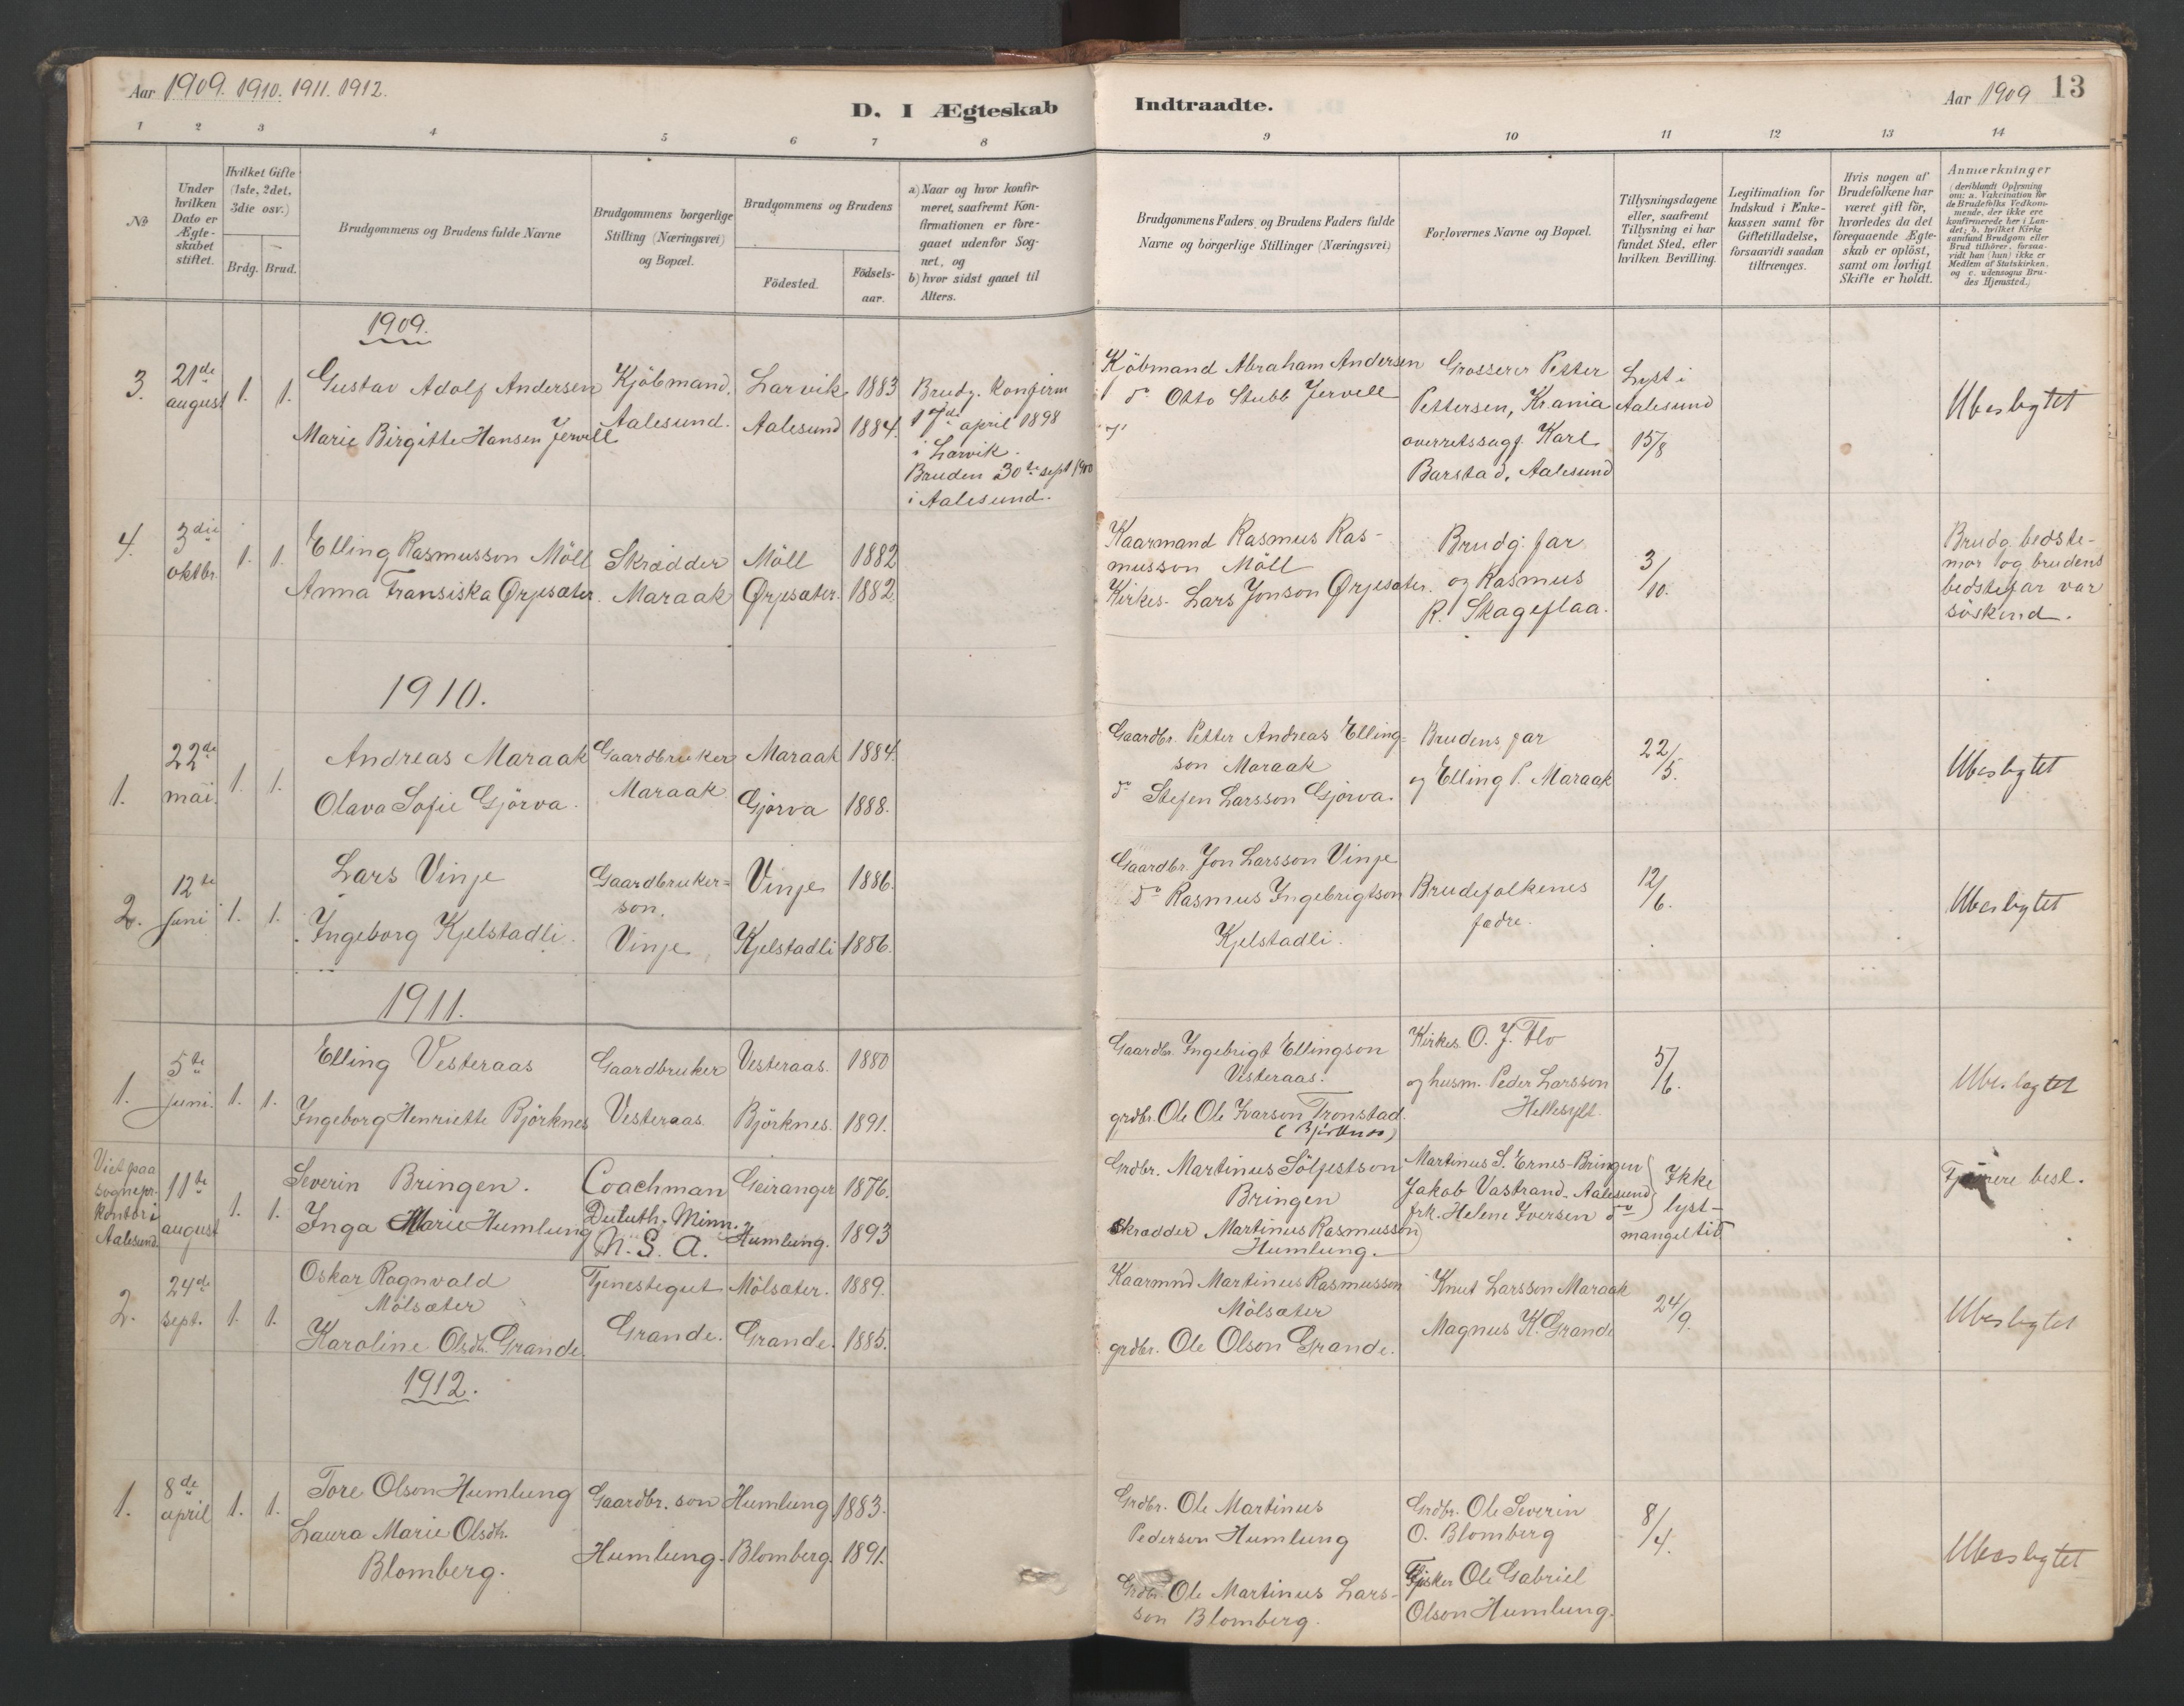 Aar 1909. 1910. 1911. 1912.
D. I Ægteskab
1 2 3 4 5 6 7 8
No
Under hvilken Dato er Ægteskabet stiftet.
Hvilket Gifte (1ste, 2det, 3die osv.)
Brdg. Brud.
Brudgommens og Brudens fulde Navne
Brudgommens borgerlige Stilling (Næringsvei) og Bopæl.
Brudgommens og Brudens
Födested.
Födsels-aar.
a) Naar og hvor konfir-
meret, saafremt Kon-
firmationen er fore-
gaaet udenfor Sog-
net, og
b) hvor sidst gaaet til
Alters.
1909.
3. 21de august 1. 1.
Gustav Adolf Andersen
Marie Birgitte Hansen Jervell
Kjöbmand.
Aalesund.
Larvik 1883
Aalesund 1884.
Brudg. Konfirm
april 1898
i Larvik.
Bruden 30te sept 1900
i Aalesund.
4. 3die oktbr. 1. 1.
Elling Rasmusson Möll
Anna Fransiska Ørjesæter.
Skrædder
Maraak
Möll 1882
Ørjesæter. 1882.
1910.
1. 22de mai. 1. 1.
Andreas Maraak
Olava Sofie Gjörva.
Gaardbruker
Maraak
Maraak 1884.
Gjörva 1888.
2. 12te Juni 1. 1.
Lars Vinje
Ingeborg Kjelstadli.
Gaardbruker=
son.
Vinje
Vinje 1886.
Kjelstadli 1886.
1911.
1. 5te Juni. 1. 1.
Elling Vesteraas
Ingeborg Henriette Björknes
Gaardbruker
Vesteraas.
Vesteraas. 1880
Björknes. 1891.
Viet paa
sognepr.
kontori
Aalesund.
11te august 1. 1.
Severin Bringen.
Inga Marie Humlung
Coachman
Duluth. Minn.
U. S. A.
Geiranger 1876.
Humlung. 1893
2. 24de sept. 1. 1.
Oskar Ragnvald
Mölsæter
Karoline Olsdtr. Grande.
Tjenestegut
Grande.
Mölsæter. 1889.
Grande. 1885.
1912.
1. 8de april 1. 1.
Tore Olson Humlung
Laura Marie Olsdtr.
Blomberg.
Gaardbr. son
Humlung.
Humlung 1883.
Blomberg. 1891.
Indtraadte.
Aar 1909 13
9 10 11 12 13 14
Brudgommens Faders og Brudens Faders fulde
Navne og borgerlige Stillinger (Næringsvei)
Forlovernes Navne og Bopæl.
Tillysningsdagene
eller, saafremt
Tillysning ei har
fundet Sted, efter
hvilken Bevilling.
Legitimation for
Indskud i Enke-
kassen samt for
Giftetilladelse,
forsaavidt saadan
tiltrænges.
Hvis nogen af
Brudefolkene har
været gift för,
hvorledes da det
foregaaende Ægte-
skab er oplöst,
samt om lovligt
Skifte er holdt.
Anmærkninger
(deriblandt Oplysning
om: a. Vakcination for
de Brudefolks Vedkom-
mende, der ikke ere
konfirmerede her i Lan-
det; b. hvilket Kirke-
samfund Brudgom eller
Brud tilhörer, forsaa-
vidt han (hun) ikke er
Medlem af Statskirken,
og c. udensogns Bru-
des Hjemsted.)
Köbmand Abraham Andersen
do Otto Stubb Jervell
Grosserer Petter
Pettersen, Krania
overretssagf. Karl
Barstad, Aalesund
Lyst i
Aalesund
15/8
Ubeslegtet
Kaarmand Rasmus Ras-
musson Möll
Kirkes. Lars Jonson Ørjesæter.
Brudg. far
og Rasmus
R. Skageflaa.
3/10.
Brudg. bedste-
mor og brudens
bedstefar var
söskend.
Gaardbr. Petter Andreas Elling-
son Maraak
do Stefen Larsson Gjörva.
Brudens far
og Elling P. Maraak
22/5.
Ubeslegtet
Gaardbr. Jon Larsson Vinje
do Rasmus Ingebrigtson
Kjelstadli.
Brudefolkenes
fædre.
12/6.
Ubeslegtet
Gaardbr. Ingebrigt Ellingson
Vesteraas.
grdbr. Ole Ole Ivarson Tronstad.
(Björknes)
Kirkes. O. J. Flo
og husm. Peder Larsson
Hellesylt.
5/6.
Ubeslegtet
Grdbr. Martinus Söljestson
Bringen
Skrædder Martinus Rasmusson
Humlung.
Martinus S. Ernes-Bringen
Jakob Vastrand. Aalesund
frk. Helene Iversen do
Ikke
lyst-
mangel tid
Fjernere besl.
Kaarmnd Martinus Rasmusson
Mölsæter
grdbr. Ole Olson Grande.
Knut Larsson Maraak
Magnus K. Grande
24/9.
Ubeslegtet
Grdbr. Ole Martinus
Pederson Humlung
Grdbr. Ole Martinus Lars-
son Blomberg.
Grdbr. Ole Severin
O. Blomberg
Fisker Ole Gabriel
Olson Humlung.
8/4.
Ubeslegtet